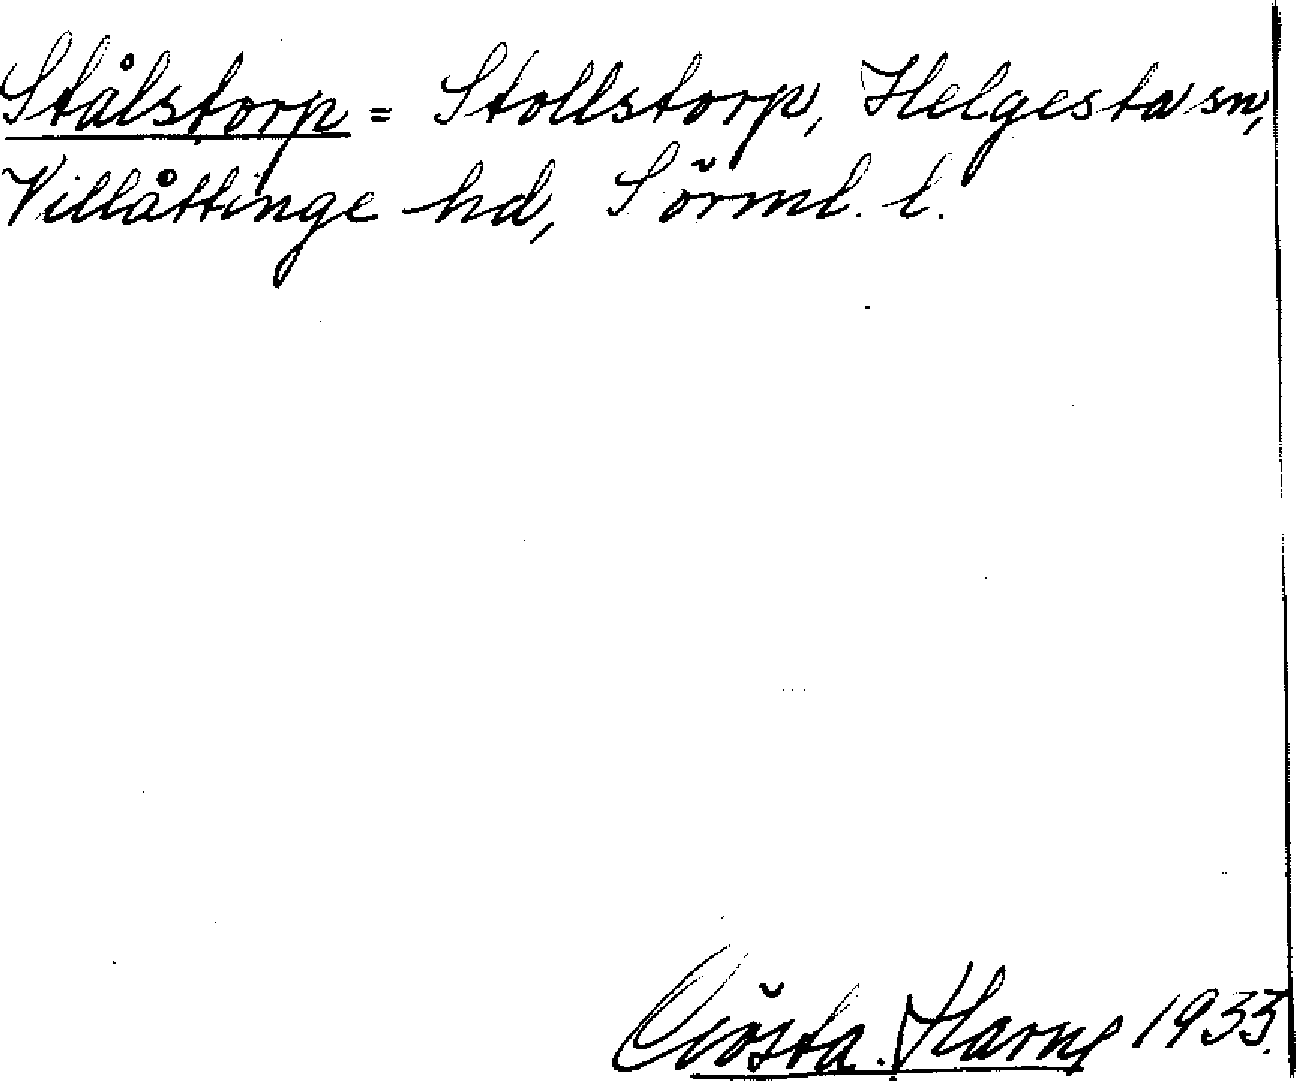 Stålstorp = Stollstorp, Helgesta sn,
Villåttinge hd, Sörml. l.
Gösta Harne 1933.